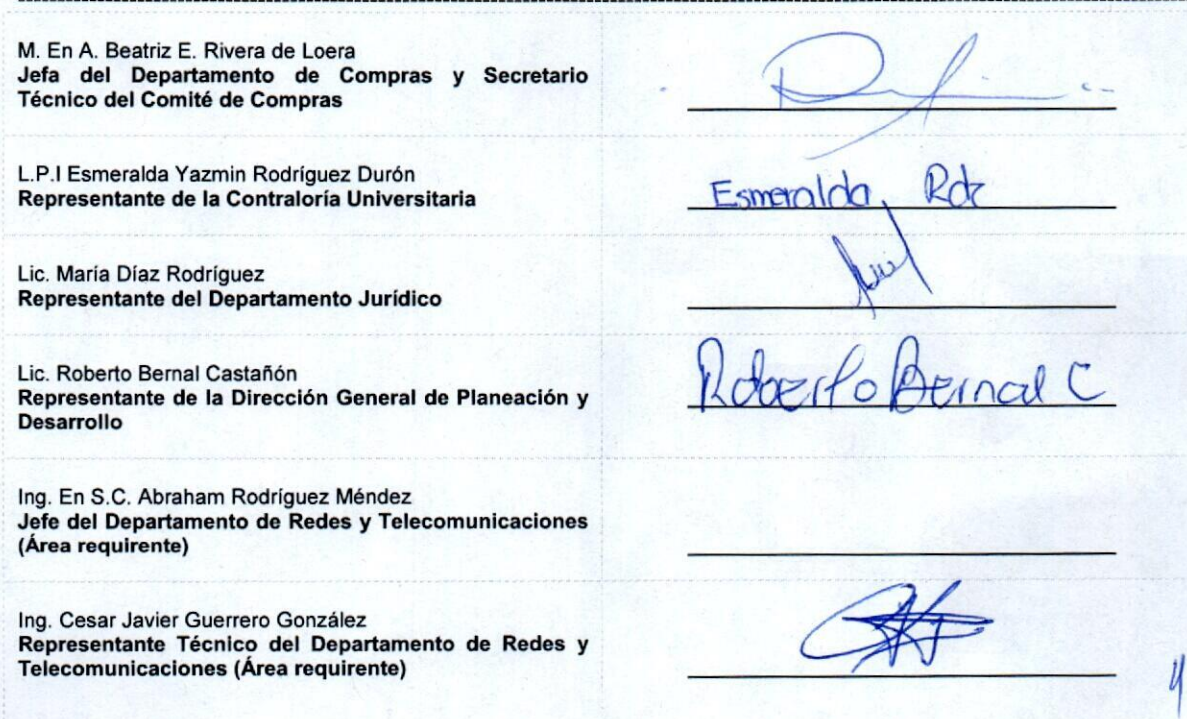 M. En A. Beatriz E. Rivera de Loera
Jefa del Departamento de Compras y Secretario
Técnico del Comité de Compras
L.P.I Esmeralda Yazmin Rodríguez Durón
Representante de la Contraloría Universitaria
Esmeralda Rdz
Lic. María Díaz Rodríguez
Representante del Departamento Jurídico
Lic. Roberto Bernal Castañón
Representante de la Dirección General de Planeación y
Desarrollo
Roberto Bernal C
Ing. En S.C. Abraham Rodríguez Méndez
Jefe del Departamento de Redes y Telecomunicaciones
(Área requirente)
Ing. Cesar Javier Guerrero González
Representante Técnico del Departamento de Redes y
Telecomunicaciones (Área requirente)